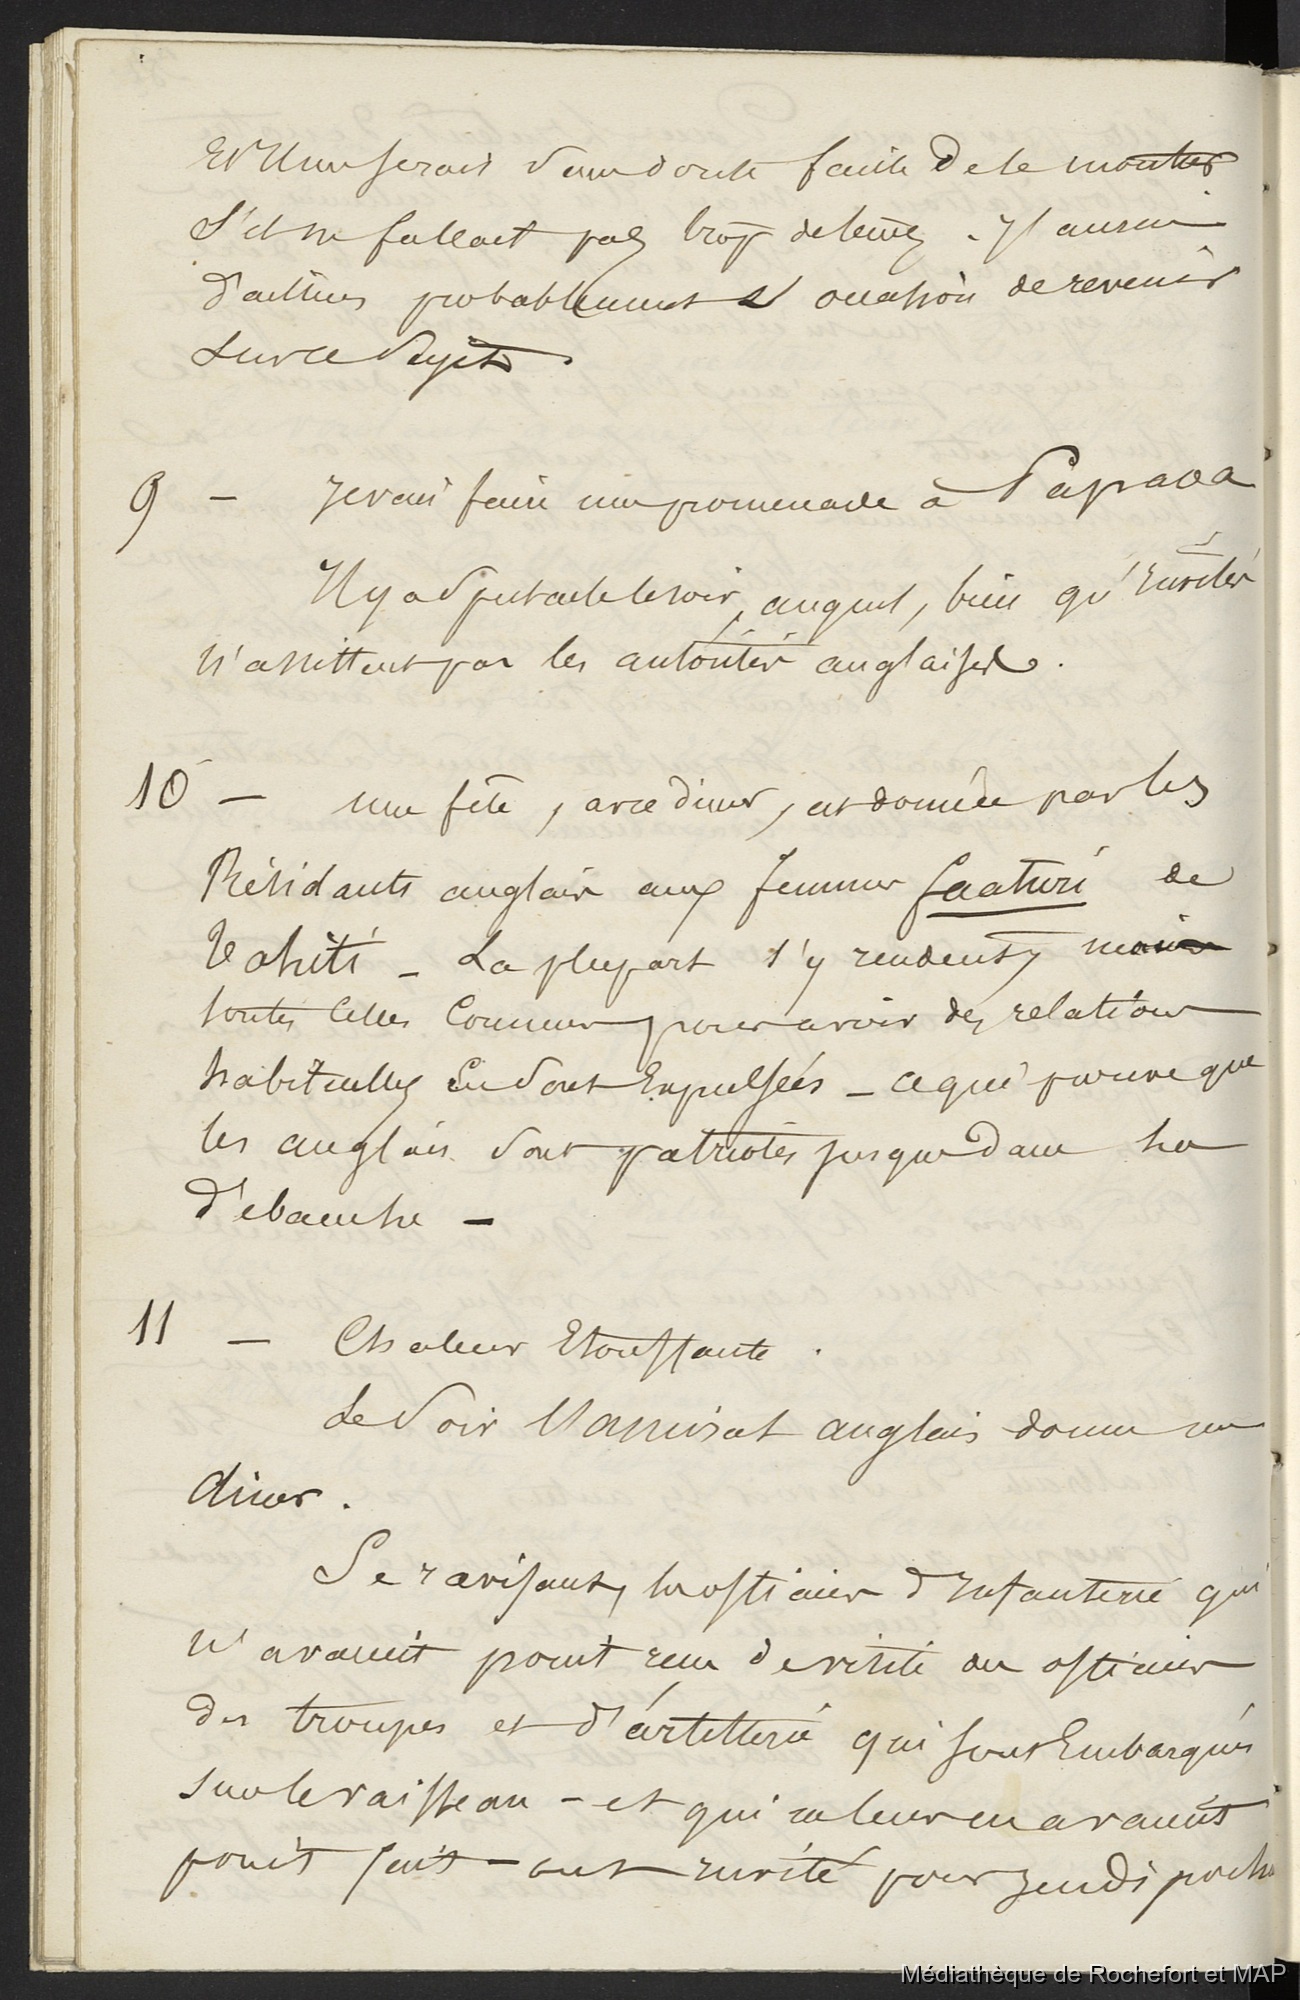 Et il me serait sans doute facile de le montrer
s'il ne fallait pas trop de temps. J'aurai
d'ailleurs probablement l'occasion de revenir
sur ce sujet.
9 - Je vais faire une promenade à Papaoa
Il y a spectacle le soir, auquel, bien qu'invités
n'assistent pas les autorités anglaises.
10 - une fête, avec diner, est donnée par les
Résidants anglais aux femmes faaturi de
Tahiti - La plupart s'y rendent, mais
toutes celles connues pour avoir des relations
habituelles en sont Expulsées - ce qui prouve que
les anglais sont patriotes jusque dans la
débauche -
11 - Chaleur Etouffante.
Le soir l'amiral anglais donne un
diner.
Se ravisant, les officiers d'Infanterie qui
n'avaient point reçu de visite des officiers
des troupes et d'artillerie qui sont Embarqués
sur le vaisseau - et qui ne leur en avaient
point fait - ont invité pour jeudi prochain
Médiathèque de Rochefort et MAP